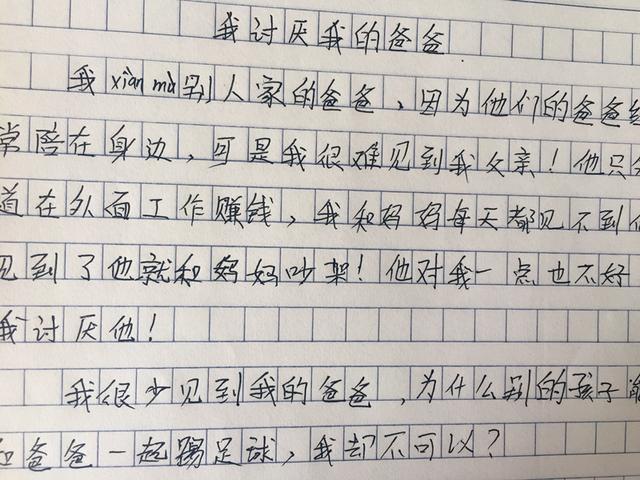 我讨厌我的爸爸
我xiàn mù别人家的爸爸，因为他们的爸爸经
常陪在身边，可是我很难见到我父亲！他只
道在外面工作赚钱，我和妈妈每天都见不到
见到了他就和妈妈吵架！他对我一点也不好
我讨厌他！
我很少见到我的爸爸，为什么别的孩子能
和爸爸一起踢足球，我却不可以？